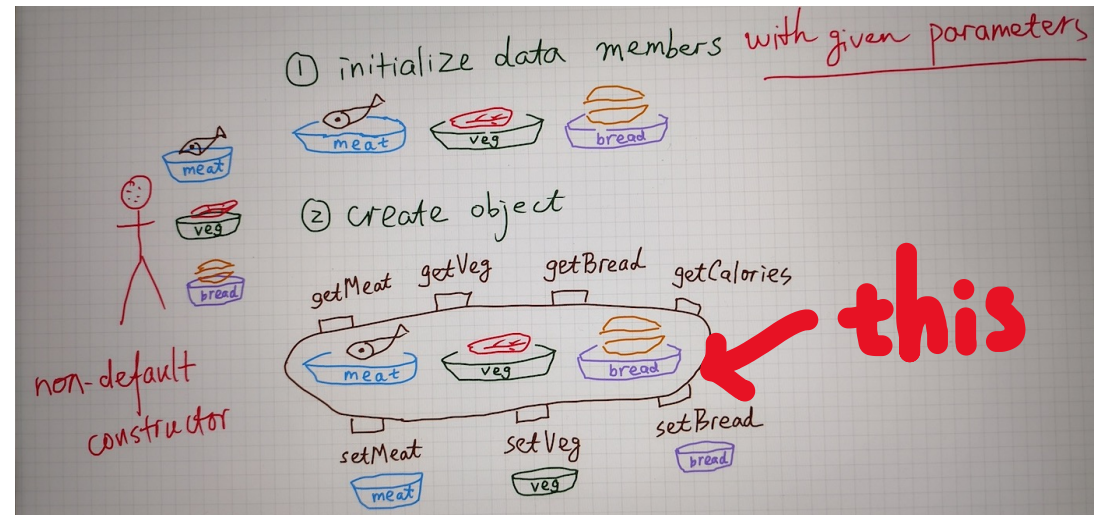 ① initialize data members with given parameters
meat veg bread
meat
veg
bread
② create object
getMeat getVeg getBread getCalories
this
meat veg bread
non-default
constructor
setMeat setVeg setBread
meat veg bread